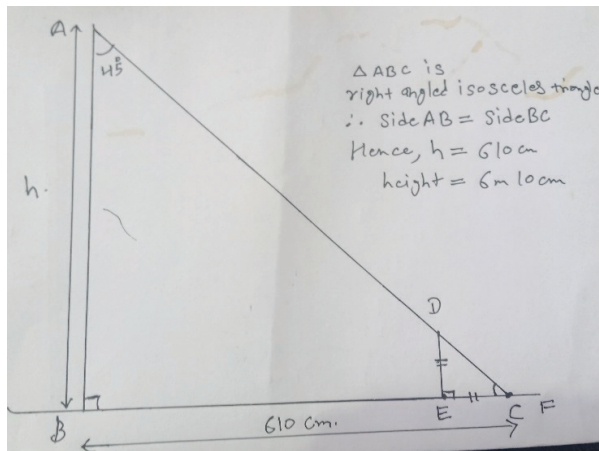 A
45°
△ABC is
right angled isosceles triangle
∴ Side AB = Side BC
Hence, h = 610 cm
height = 6m 10cm
h.
D
B
E
C
F
610 cm.